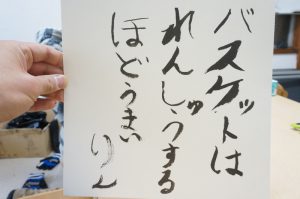 バスケットは
れんしゅうする
ほどうまい
りん